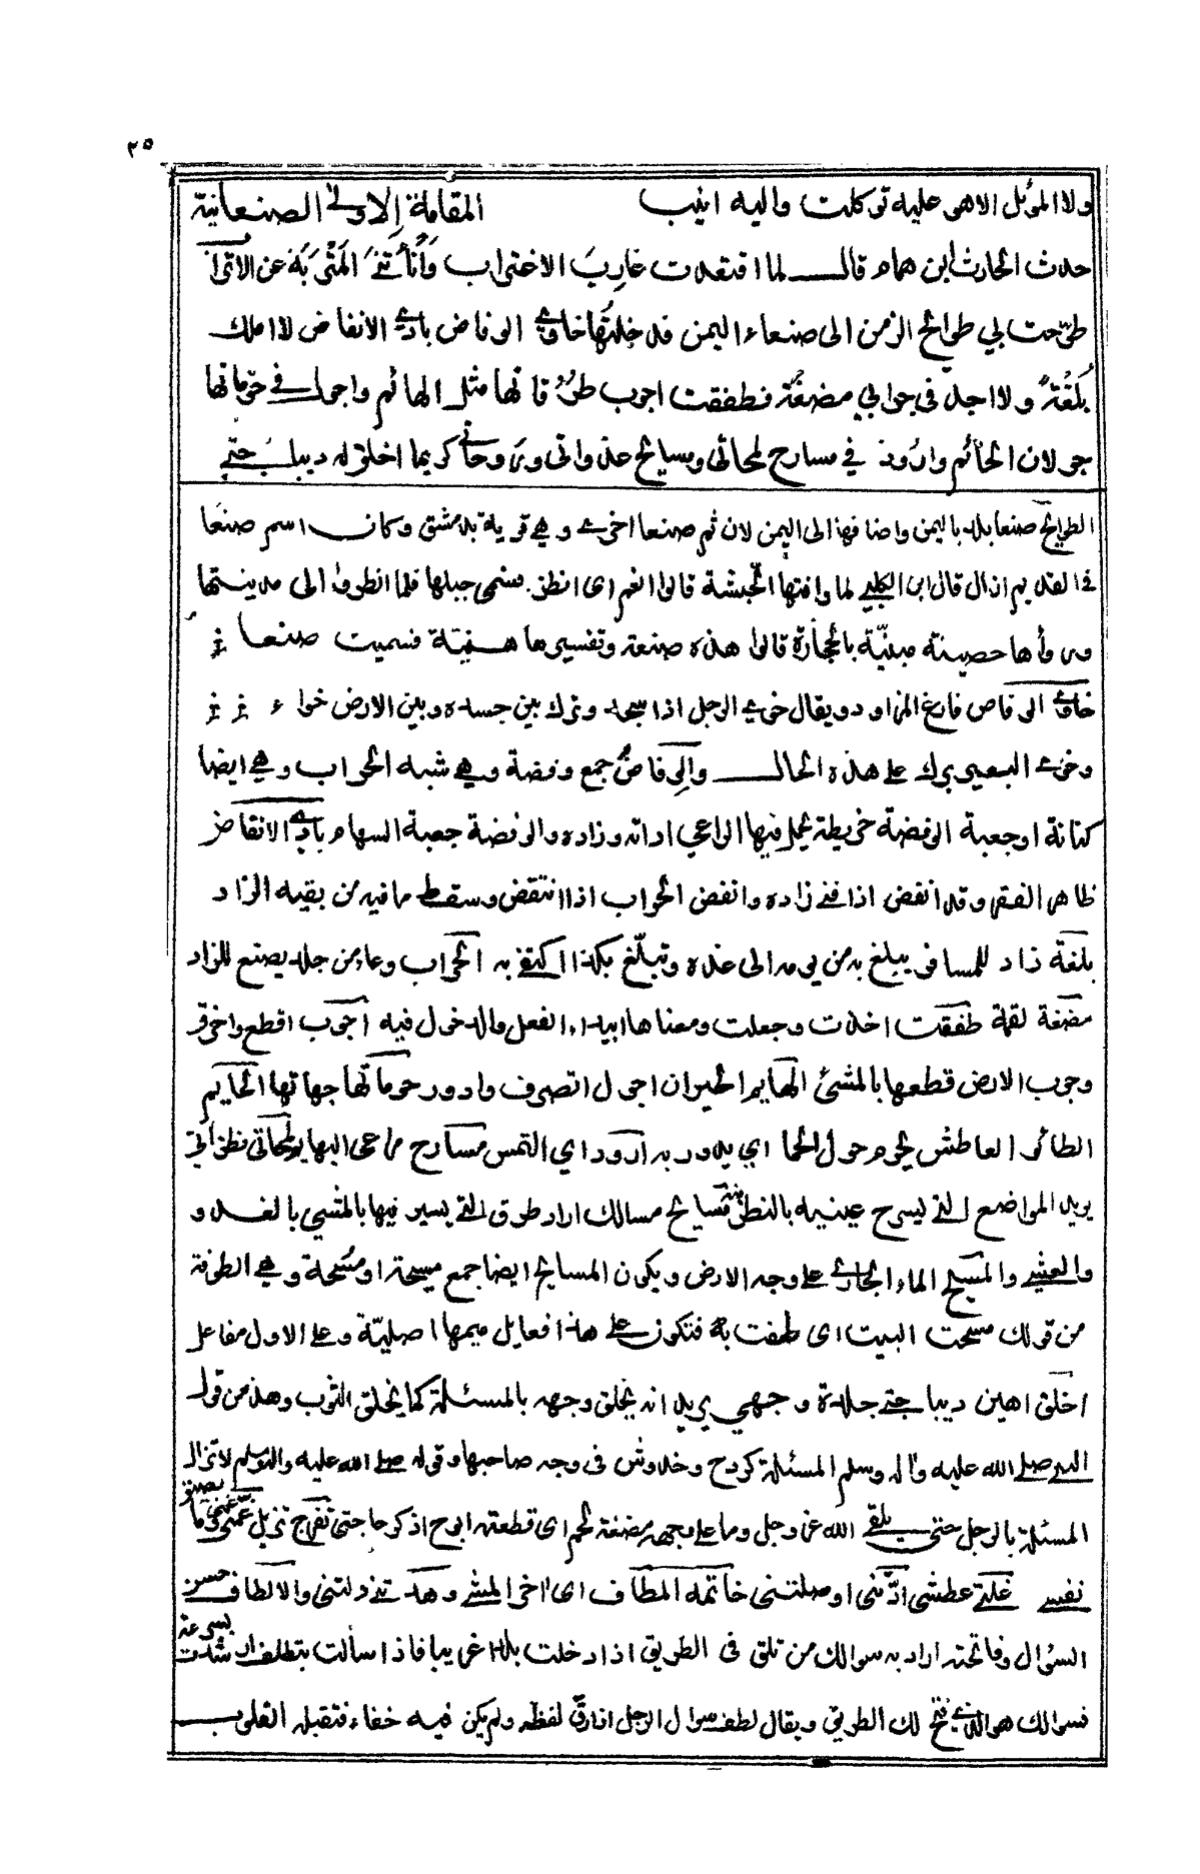 ٢٥
ولا الموئل الا هو عليه توكلت واليه انيب المقامة الاولى الصنعانية
حدث الحارث ابن همام قال لما اقتعدت غارب الاغتراب وأنأتني المتربة عن الاتراب
طوحت بي طوايح الزمن الى صنعاء اليمن فدخلتها خاوي الوفاض بادي الانفاض لا املك
بلغة ولا اجد في جرابي مضغة فطفقت اجوب طرقاتها مثل الهائم واجول في حوماتها
جولان الحائم وارود في مسارح لمحاتي ومسايح غدواتي وروحاتي كريما اخلق له ديباجتي
الطوايح صنعا بلد باليمن واضافها الى اليمن لان ثم صنعا اخرى وهي قرية بدمشق وكان اسم صنعا
في القديم ازال قال ابن الكلبي لما وافتها الحبشة قالوا انغم اى انظر فسمي جبلها فلما انظروا الى مدينتها
وراوها حصينة مبنية بالحجارة قالوا هذه صنعة وتفسيرها هنيئة فسميت صنعا
خاوي الوفاض فارغ المزاود ويقال خوى الرجل اذا سجد وترك بين جسده وبين الارض خواء
وخوى البعير برك على هذه الحال والوفاض جمع وفضة وهي شبه الجراب وهي ايضا
كنانة او جعبة الوفضة خريطة يحمل فيها الراعي اداته وزاده والوفضة جعبة السهام بادي الانفاض
ظاهر الفقر وقد انفض اذا فني زاده وانفض الجراب اذا انتفض وسقط ما فيه من بقيه الزاد
بلغة زاد للمسافر يبلغ به من يومه الى غده وتبلغ بكذا اكتفى به الجراب وعاء من جلد يصنع للزاد
مضغة لقمة طفقت اخذت وجعلت ومعناها ابتداء الفعل والدخول فيه اجوب اقطع واخرق
وجوب الارض قطعها بالمشئ الهايم الحيران اجول اتصرف وادور حوماتها جهاتها الحايم
الطائر العاطش يحوم حول الما اي يدور به ارود اي التمس مسارح مراعى لمحاتي نظراتي
يريد المواضع التي يسرح عينيه بالنظر مسايح مسالك اراد طرق التي يسير فيها بالمشي بالغدو
والعشي والمسيح الماء الجاري على وجه الارض ويكون المسايح ايضا جمع مسيحة او مسحة وهي الطوفة
من قولك مسحت البيت اى طفت به فتكون على هذا فعايل ميمها اصلية وعلى الاول مفاعل
اخلق اهين ديباجتي جلدة وجهي يريد انه يخلق وجهه بالمسئلة كما يخلق الثوب وهذ من قول
النبى صلى الله عليه وآله وسلم المسئلة كروح وخدوش في وجه صاحبها وقوله صلى الله عليه وآله وسلم لا تزال
المسئلة بالرجل حتى يلقى الله عز وجل وما على وجهه مضغة لحم اى قطعته ابوح اذكر حاجتي تفرج تزيل غمتي
نفسي غلتي عطشي ادتني اوصلتني خاتمة المطاف اى اخر المشي وهدتني دلتني والالطاف حسن
السؤال وفاتحته اراد به سوالك من تلق في الطريق اذا دخلت بلدا غريبا فاذا سالت بتلطف ارشدت بسرعة
فسوالك هو الذي فتح لك الطريق ويقال لطف سوال الرجل اذا رق لفظه ولم يكن فيه خفاء فتقبله القلوب